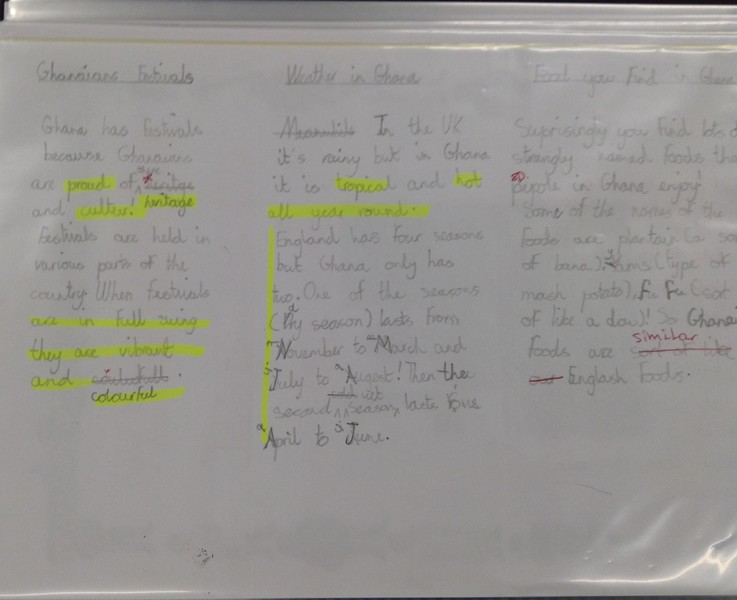 Ghanaians Festivals
Ghana has festivals
because Ghanaians
are proud of heritage
and culter! heritage
Festivals are held in
various parts of the
country. When festivals
are in full swing
they are vibrant
and
colourful
Weather in Ghana
Meanwhile In the UK
it's rainy but in Ghana
it is tropical and hot
all year round.
England has four seasons
but Ghana only has
two. One of the seasons
(Dry season) lasts from
November to March and
July to August! Then the
second wet season lasts
April to June.
Food you Find in Ghana
Surprisingly you find lots
strangly named foods
pepole in Ghana enjoy!
Some of the names of the
foods are plantain (a
of bana), yams (type of
mash potato), fu fu (sort
of like a dow)! So Ghana
similar
foods are sort of like
English foods.